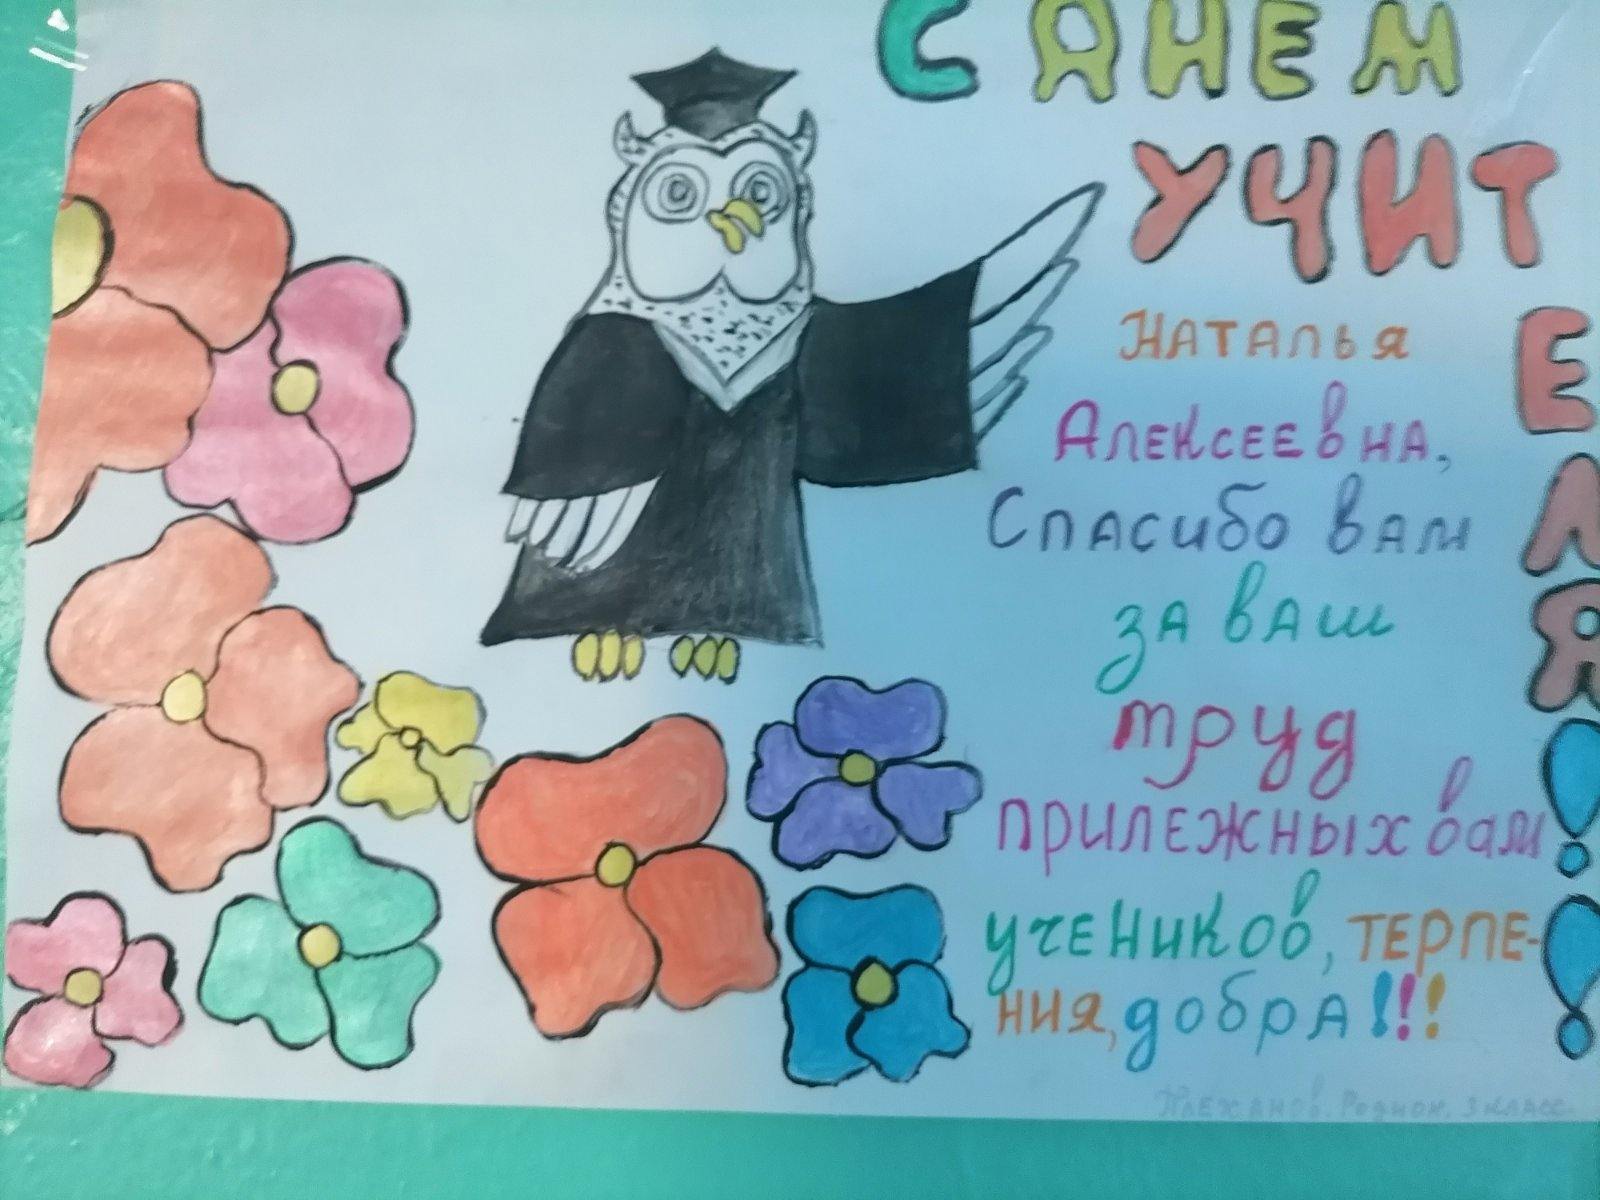 С ДНЕМ
УЧИТ
ЕЛЯ!!
Наталья
Алексеевна,
Спасибо вам
за ваш
труд
прилежных вам
учеников, терпе-
ния, добра!!!
Плеханов. Родион. 3 класс.